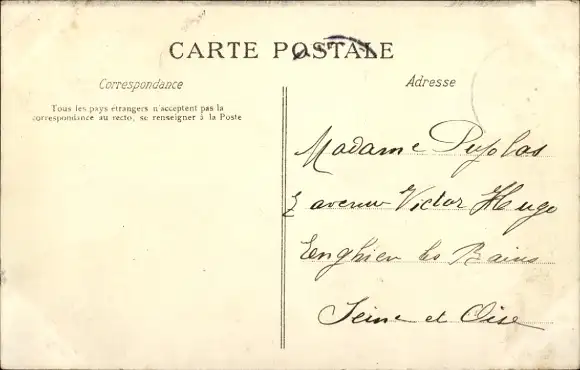 CARTE POSTALE
Correspondance
Adresse
Tous les pays étrangers n'acceptent pas la
correspondance au recto, se renseigner à la Poste
Madame Pujolas
2 avenue Victor Hugo
Enghien les Bains
Seine et Oise